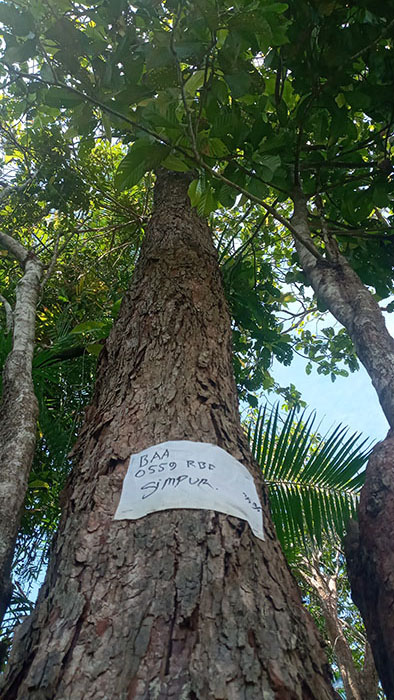 BAA
0559 RBE
SimPUR.